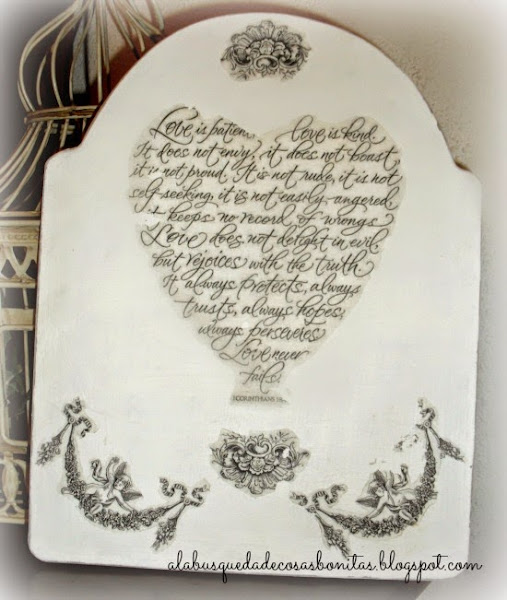 Love is patient, love is kind.
It does not envy, it does not boast,
it is not proud. It is not rude, it is not
self-seeking, it is not easily angered,
it keeps no record of wrongs
Love does not delight in evil,
but rejoices with the truth.
It always protects, always
trusts, always hopes,
always perseveres
Love never
fails.
1 CORINTHIANS 13
alabusquedadecosasbonitas.blogspot.com